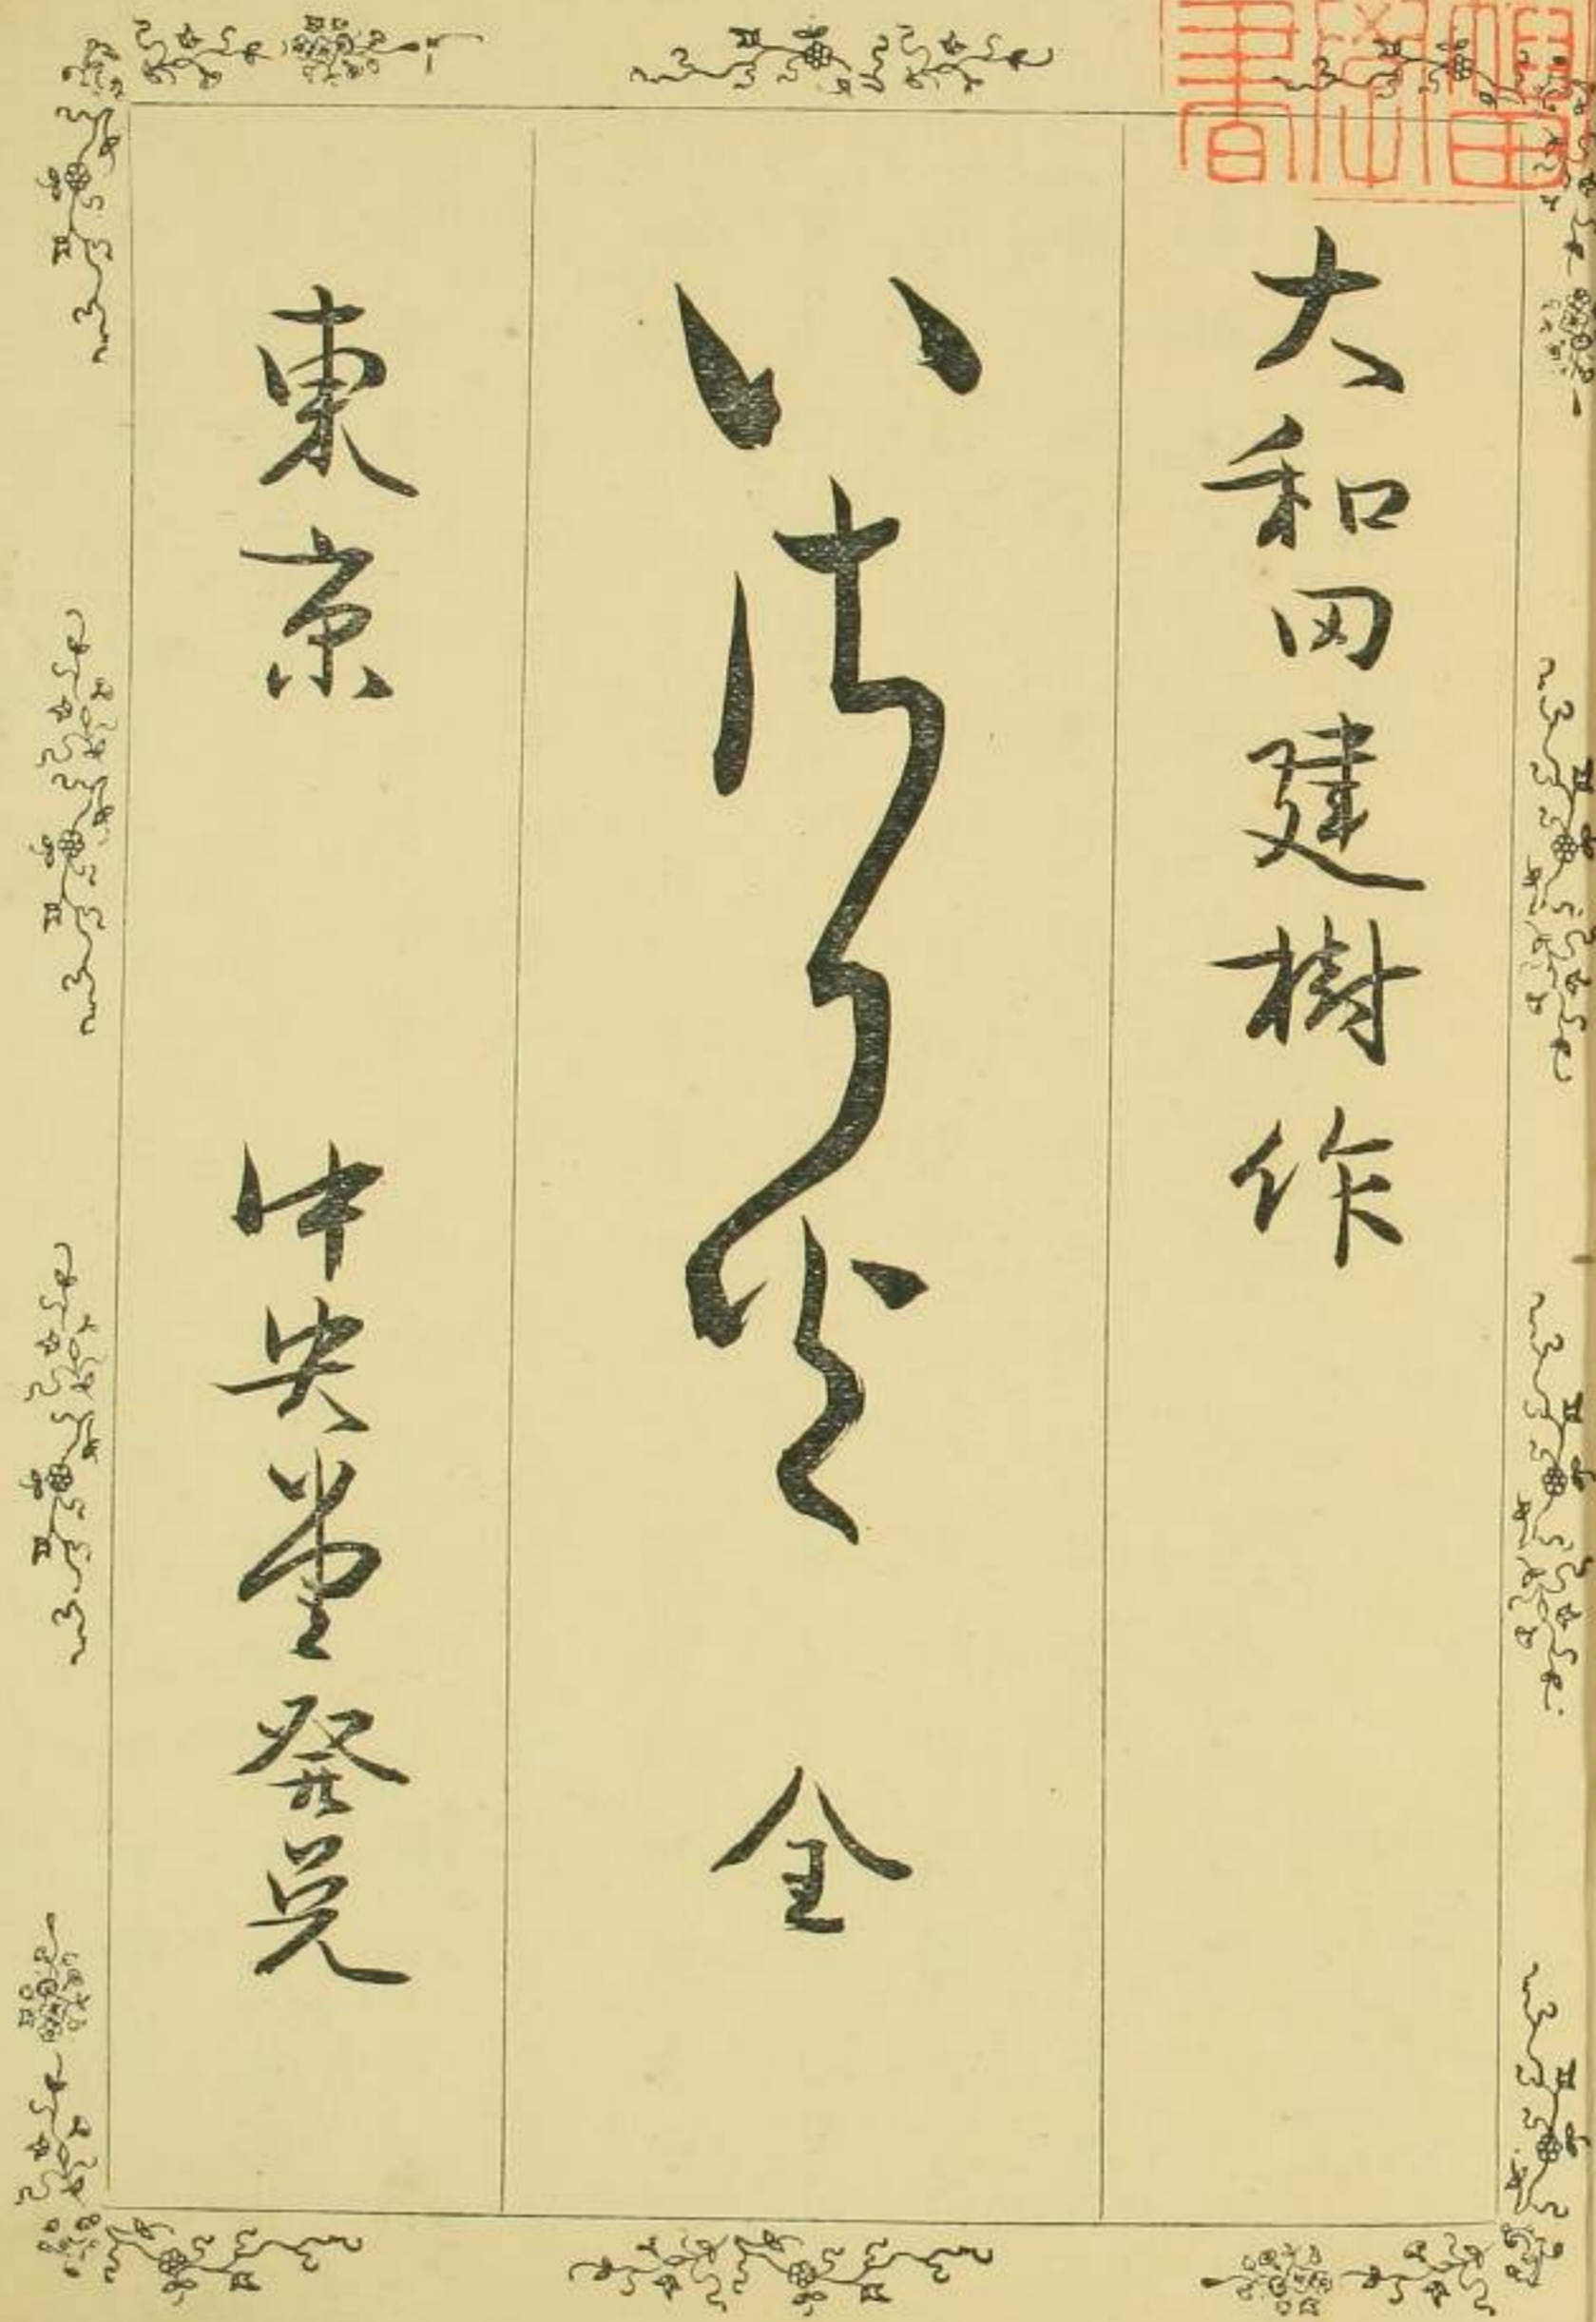 大和田建樹作
いさり火 全
東京 中央堂発兌